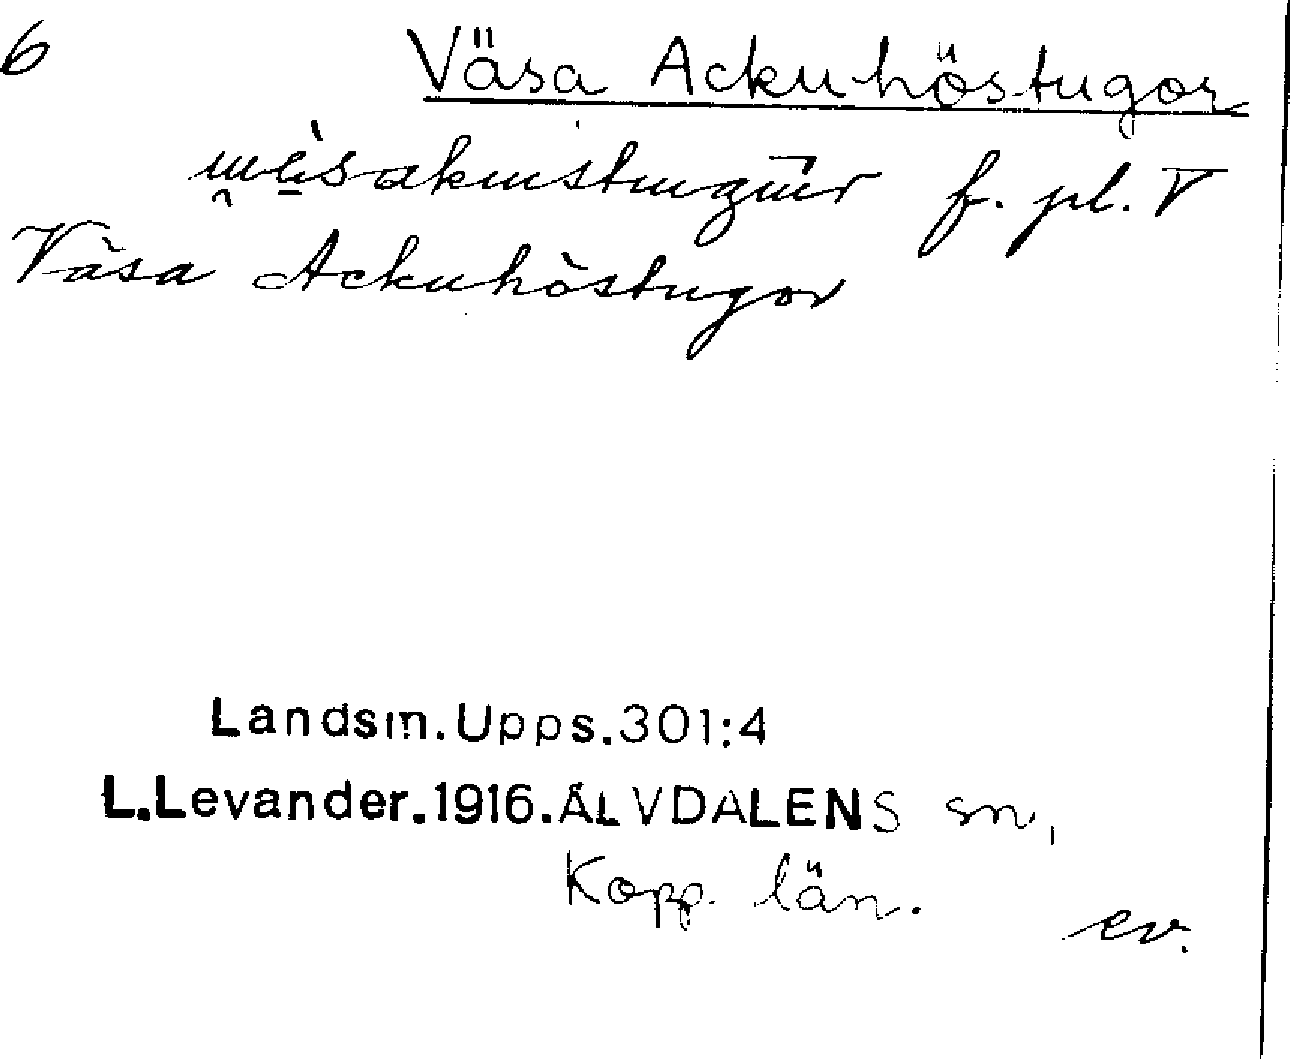 6
Väsa Ackuhöstugor
f. pl. V
Väsa Ackuhöstugor
Landsm.Upps.301:4
L.Levander.1916.ÄLVDALENS sn,
Kopp. län.
ev.